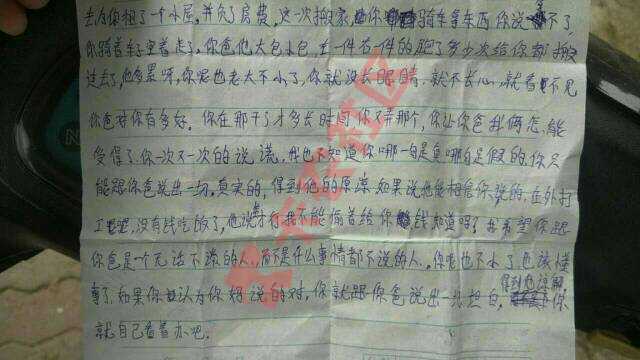 去为你租了一个小屋，并负了房费，这一次搬家你骑车拿东西你说拿不了，
你骑着车子空着走了，你爸他大包小包，左一件右一件的跑了多少次给你都搬
过去了，他多累呀，你呢也老大不小了，你就没长眼睛，就不长心，就看不见
你爸对你有多好。你在那干了才多长时间你又弄那个，你让你爸我俩怎能
受得了，你一次一次的说谎，我也不知道你哪句是真哪句是假的，你只
能跟你爸说出一切，真实的，得到他的原凉如果说他能相信你说的，在外打
工呢，没有钱吃饭了，他说才行我不能偏着给你钱，知道吗？我希望你跟
你爸是一个无话不谈的人，而不是什么事情都不说的人，你呢也不小了也该懂
事了，如果你认为你妈说的对，你就跟你爸说出一切坦白，得到他谅解，你
就自己看着办吧。